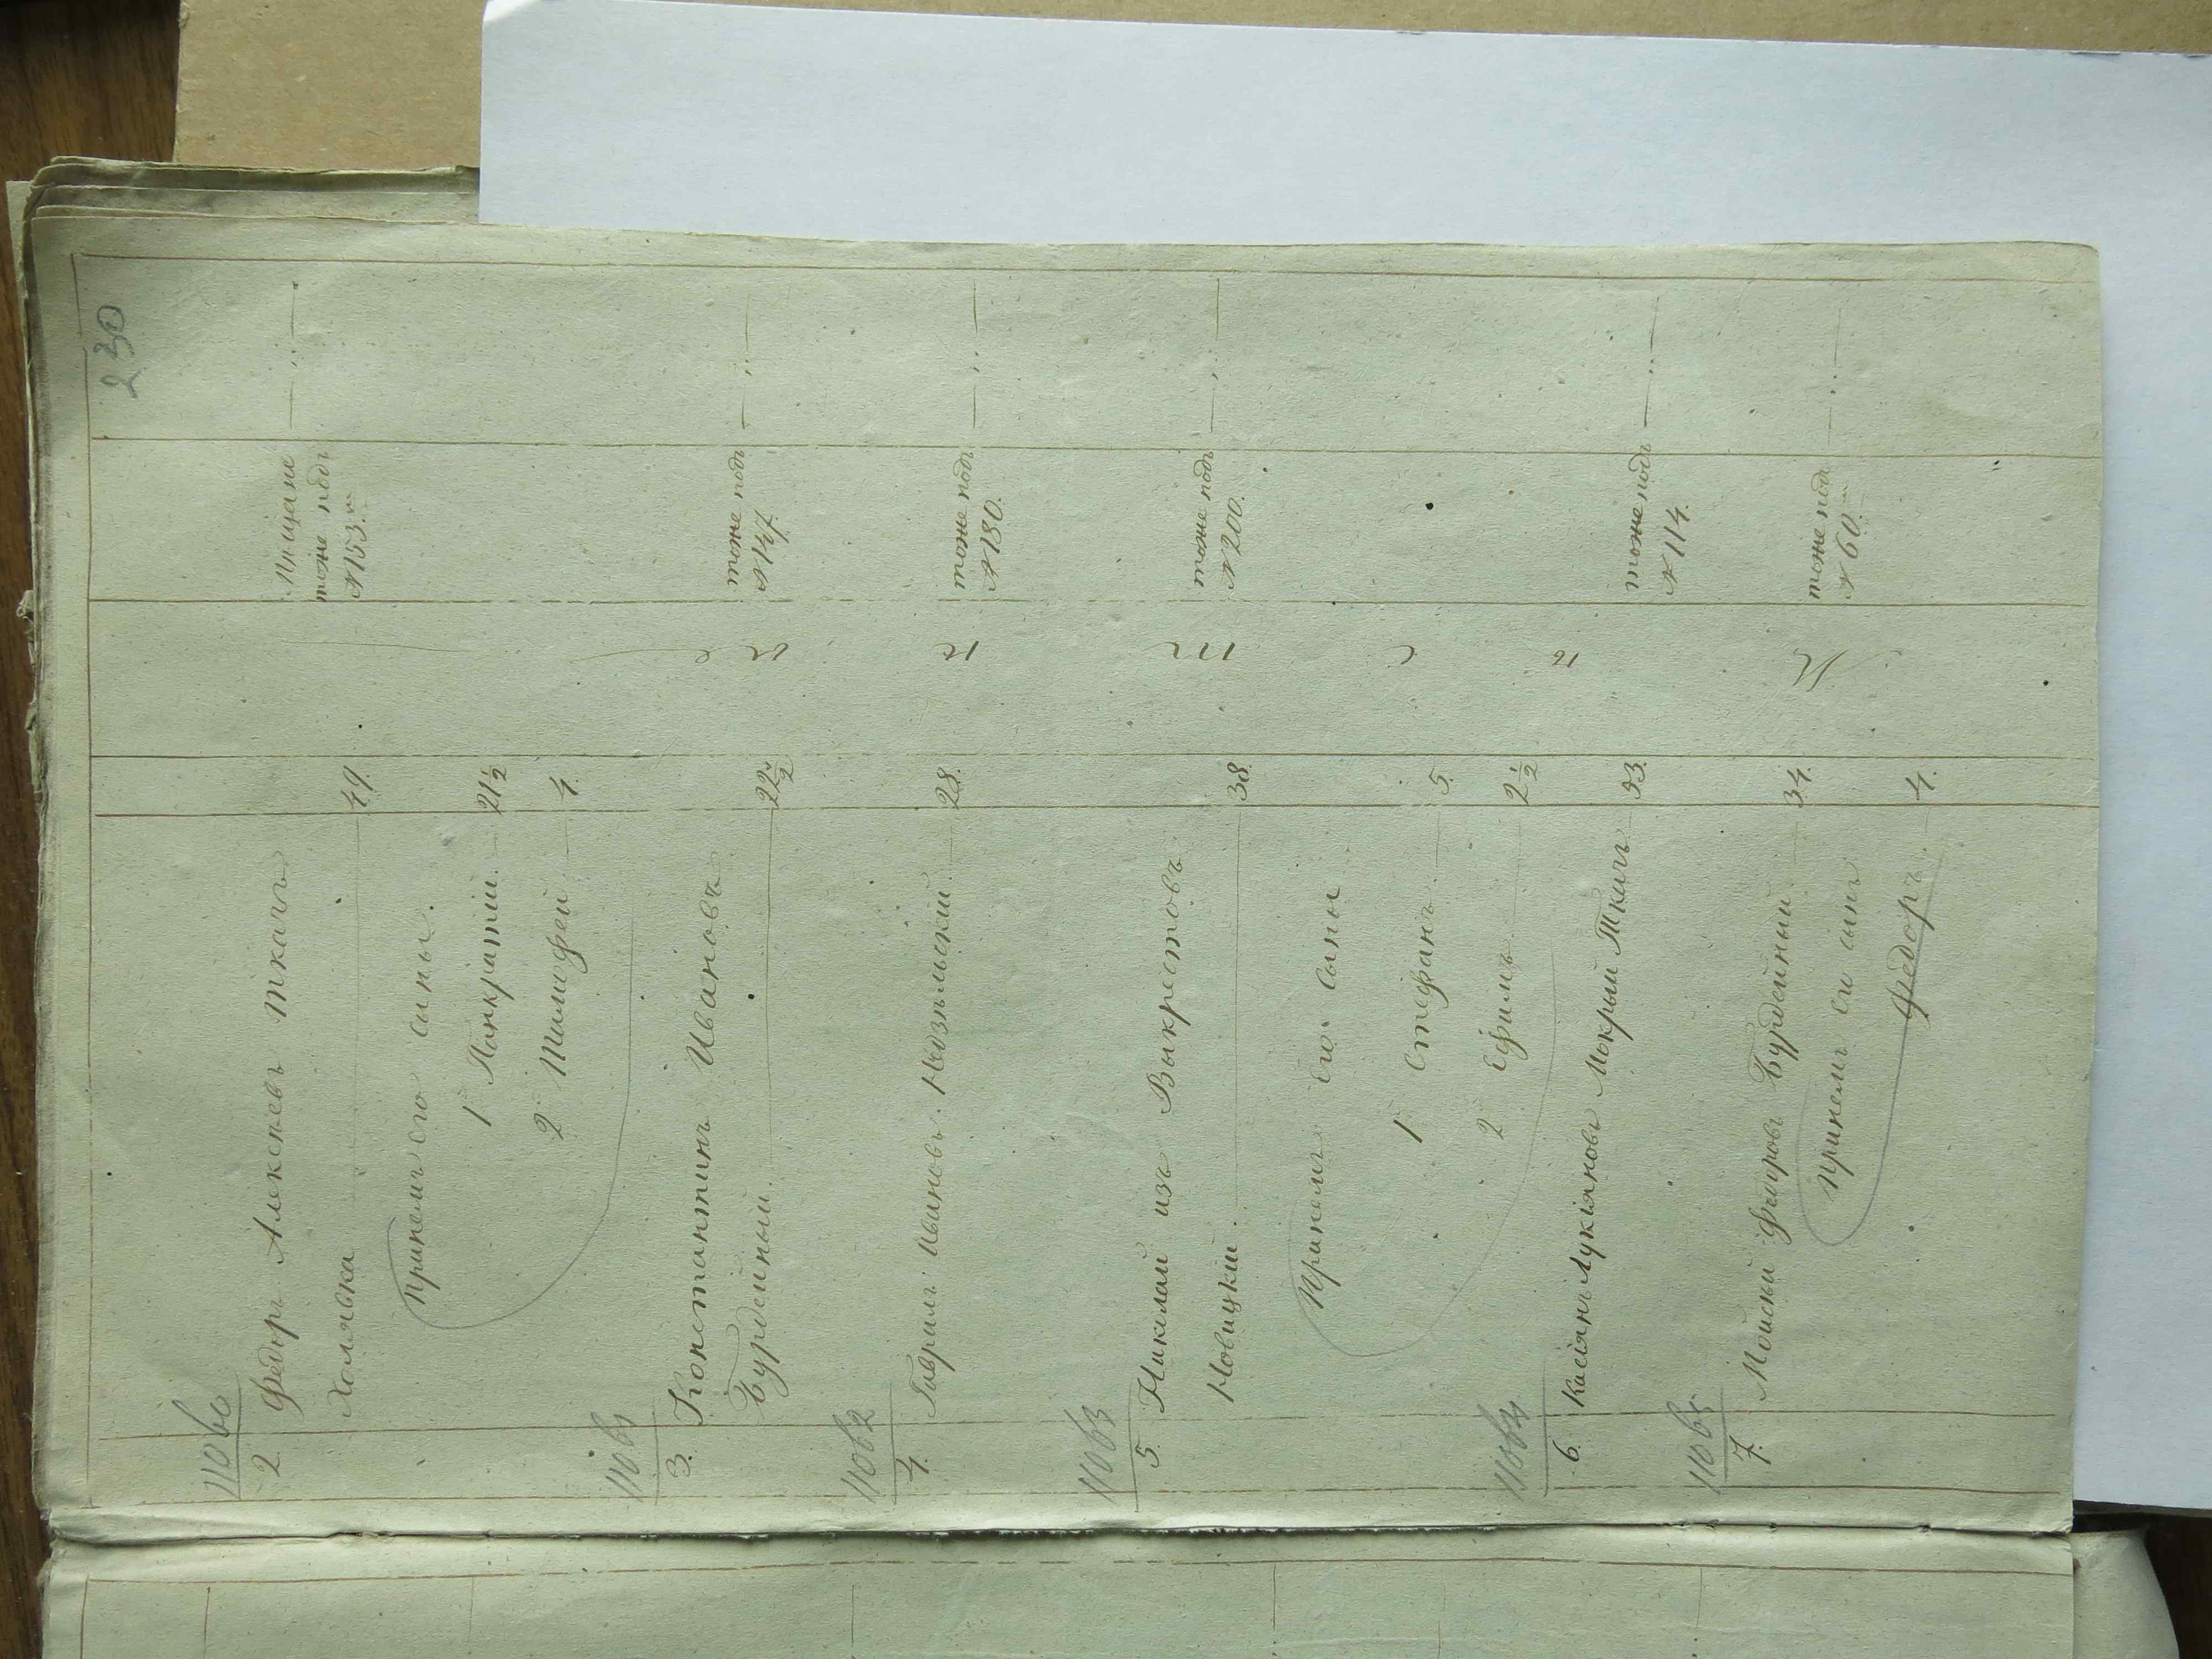 230
11060
2. Федоръ Алексѣевъ ткачъ Мѣщане
Холявка 49. тоже подъ
№ 153.
При немъ его сыны.
1 Панкратій 21 1/2
2 Тимофей 4.
11061
3. Константинъ Ивановъ тоже подъ
Бурдейный 22 1/2 № 147.
11062
4. Гаврилъ Ивановъ 28. тоже подъ
№ 180.
11063
5. Николай изъ Выкрестовъ тоже подъ
Новицкій 38. № 200.
При немъ его сыны
1 Стефанъ 5.
2 Ефимъ 2 1/2
11064
6. Касіянъ Лукіяновъ Мокрый Ткачъ 33. тоже подъ
№ 114.
11065
7. Моисей Федоровъ Бурдейный 34. тоже подъ
№ 60.
При немъ его сынъ
Федоръ 4.